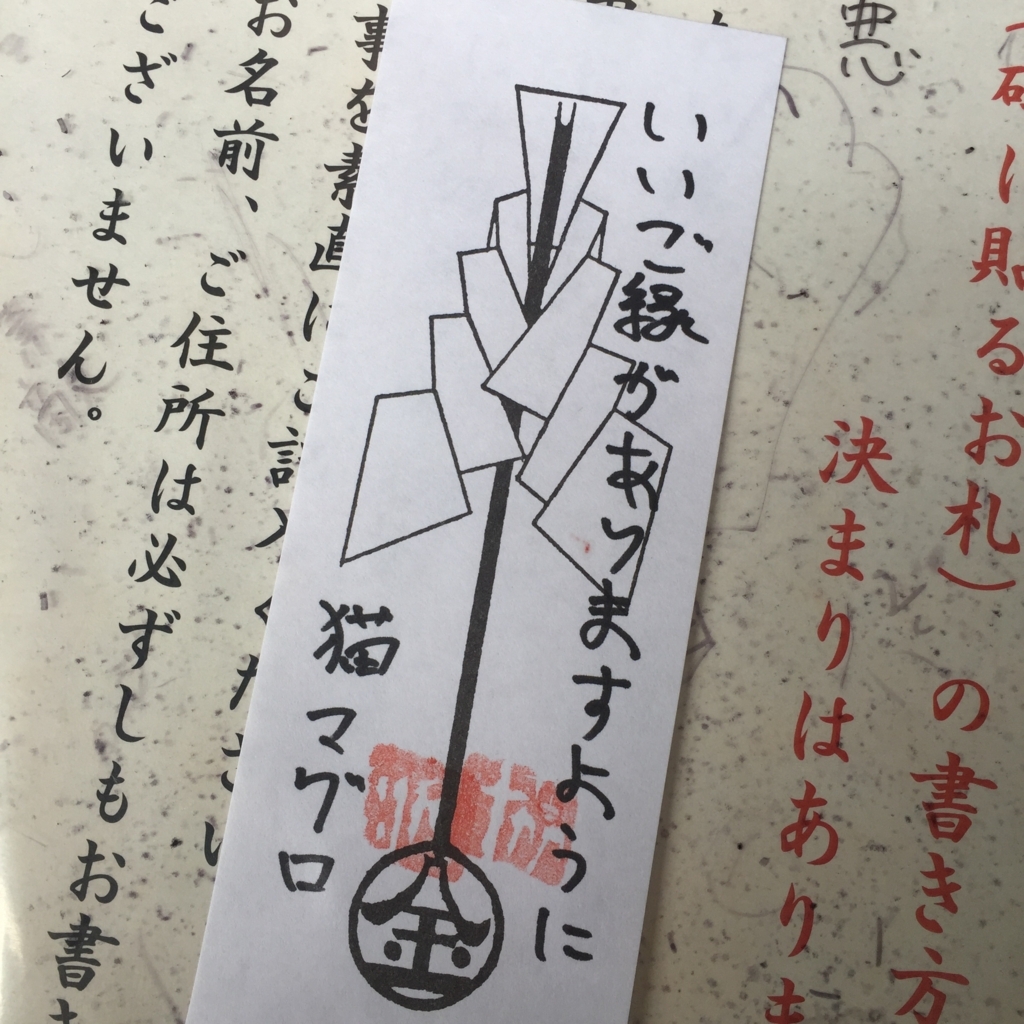 いいご縁がありますように
猫マグロ
金
悪
碑に貼るお札)の書き方
決まりはありま
事を素直にご記入ください
お名前、ご住所は必ずしもお書き
ございません。